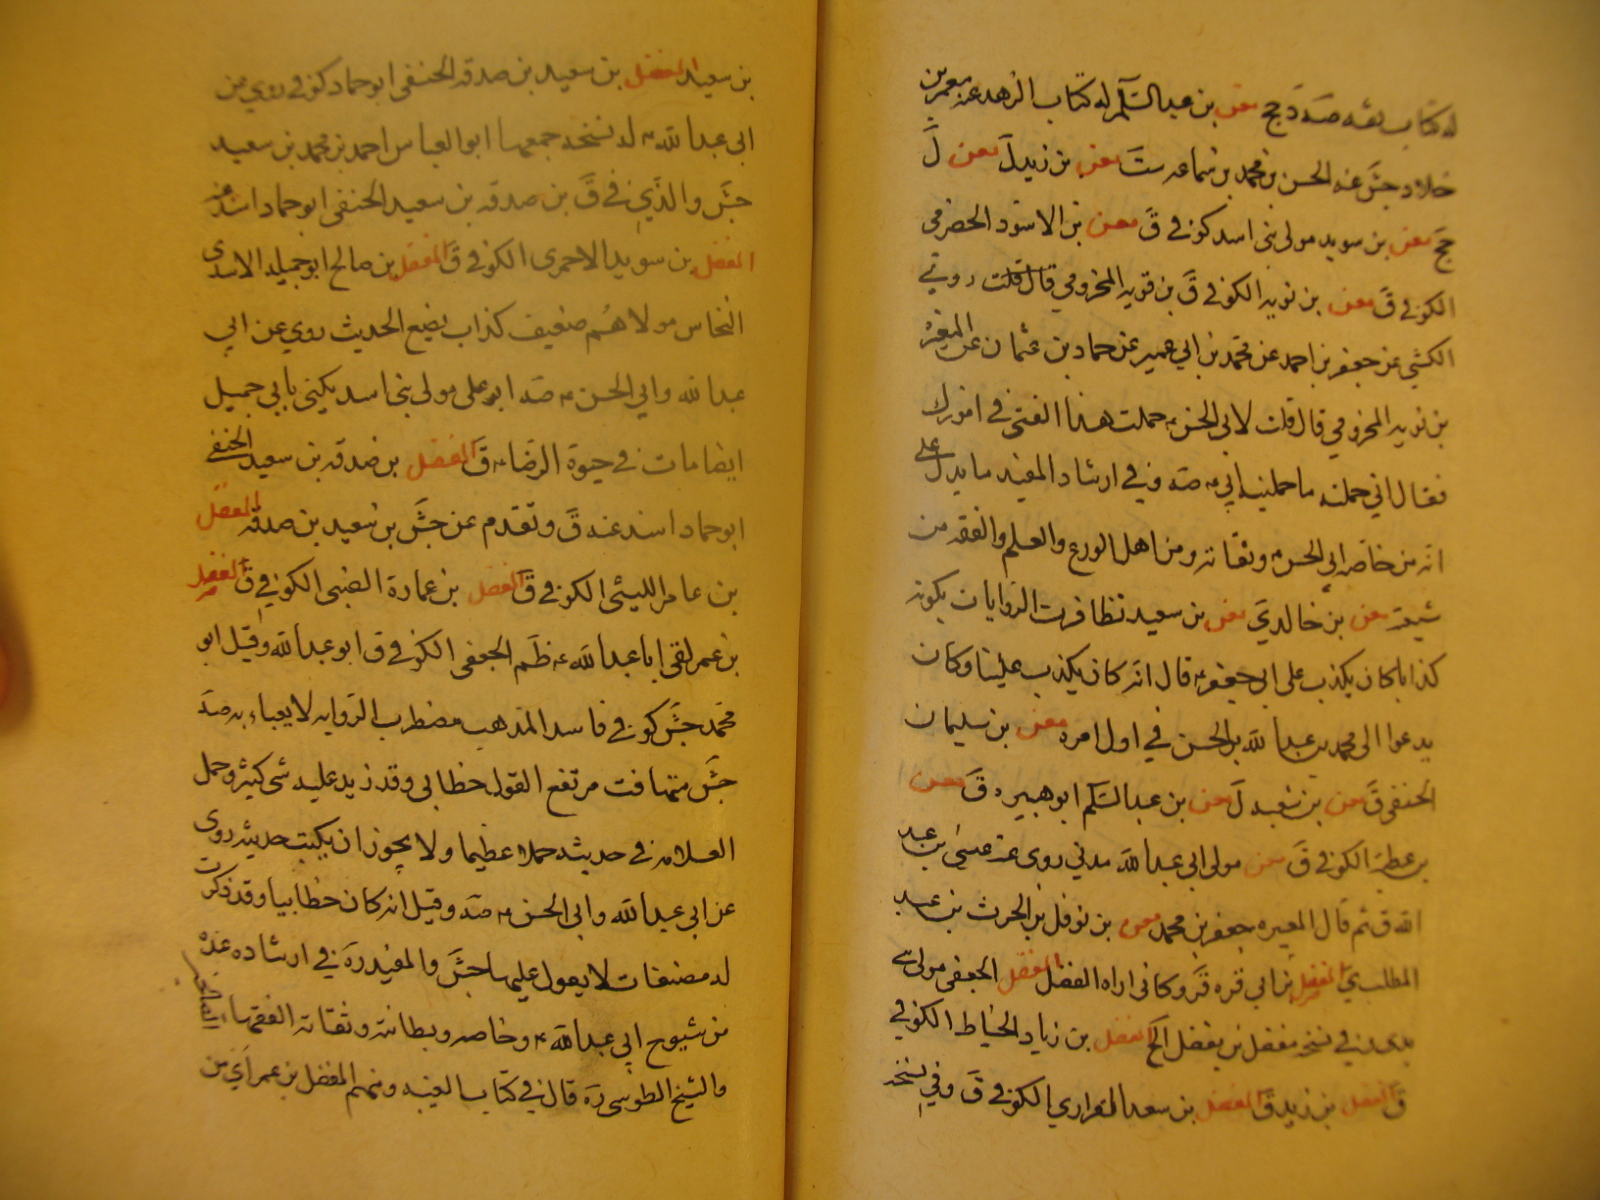 له كتاب ثقه صه د جج معن بن عبد السلام له كتاب الزهد عنه معمر بن
خلاد جش عنه الحسن بن محمد بن سماعه ست معن بن زيد ل معن ل
جج معن بن سويد مولى بنى اسد كوفي ق معن بن الاسود الحضرمي
الكوفي ق معن بن نويه الكوفي ق بن قويه المخزومي قال قلت روى
الكشي عن جعفر بن احمد عن محمد بن ابي عمير عن حماد بن عثمان عن المغيرة
بن نويه المخزومي قال قلت لابي الحسن ع حملت هذا الفتى في امورك
فقال اني حملته ما حملنيه ابي ع صه وفي ارشاد المفيد ما يدل على
انه من خاصه ابي الحسن ع وثقاته ومن اهل الورع والعلم والفقه من
شيعته معن بن خالد ي معن بن سعيد تظافرت الروايات بكونه
كذابا كان يكذب على ابي جعفر ع قال انه كان يكذب علينا وكان
يدعوا الى محمد بن عبد الله بن الحسن في اول امره معن بن سليمان
الحنفي ق معن بن شعبه ل معن بن عبد السلم ابو هبيره ق معن
بن عطيه الكوفي ق معن مولى ابي عبد الله مدني روى عنه عيسى بن عبد
الله ق ثم قال المغيره جعفر بن محمد معن بن نوفل بن الحرث بن عبد
المطلب ي المفضل بن ابي قره ق وكاني اراه الفضل المفضل الجعفى مولى
في نسخه مفضل بن يفضل الخ المفضل بن زياد الخياط الكوفي
ق المفضل بن زيد ق المفضل بن سعد الفزاري الكوفي ق وفي نسخه
بن سعيد المفضل بن سعيد بن صدقه الحنفى ابو حماد كوفي روى من
ابى عبد الله ع له نسخه جمعها ابو العباس احمد بن محمد بن سعيد
جش والذي في ق بن صدقه بن سعيد الحنفى ابو حماد اسند عنه
المفضل بن سويد الاحمرى الكوفي ق المفضل بن صالح ابو جميله الاسدى
النخاس مولاهم ضعيف كذاب يضع الحديث روى عن ابي
عبد الله وابي الحسن ع صه ابو على مولى بنى اسد يكنى بابي جميل
ايضا مات في حيوة الرضا ع ق المفضل بن صدقه بن سعيد الحنفي
ابو حماد اسند عنه ق وتقدم عن جش بن سعيد بن صدقه المفضل
بن عامر الليثي الكوفي ق المفضل بن عمارة الضبى الكوفي ق المفضل
بن عمر لقى ابا عبد الله ع ظم الجعفى الكوفي ق ابو عبد الله وقيل ابو
محمد جش كوفي فاسد المذهب مضطرب الروايه لا يعباء به صه
جش متهافت مرتفع القول خطابي وقد زيد عليه شئ كثير وحمل
الغلاه في حديثه حملا عظيما ولا يجوز ان يكتب حديثه روى
عن ابي عبد الله وابى الحسن ع صه وقيل انه كان خطابيا وقد ذكرت
له مصنفات لا يعول عليها جش والمفيد ره في ارشاده عده
من شيوخ ابي عبد الله ع وخاصه وبطانته وثقاته الفقهاء
والشيخ الطوسى ره قال في كتاب الغيبه ومنهم المفضل بن عمر اي من